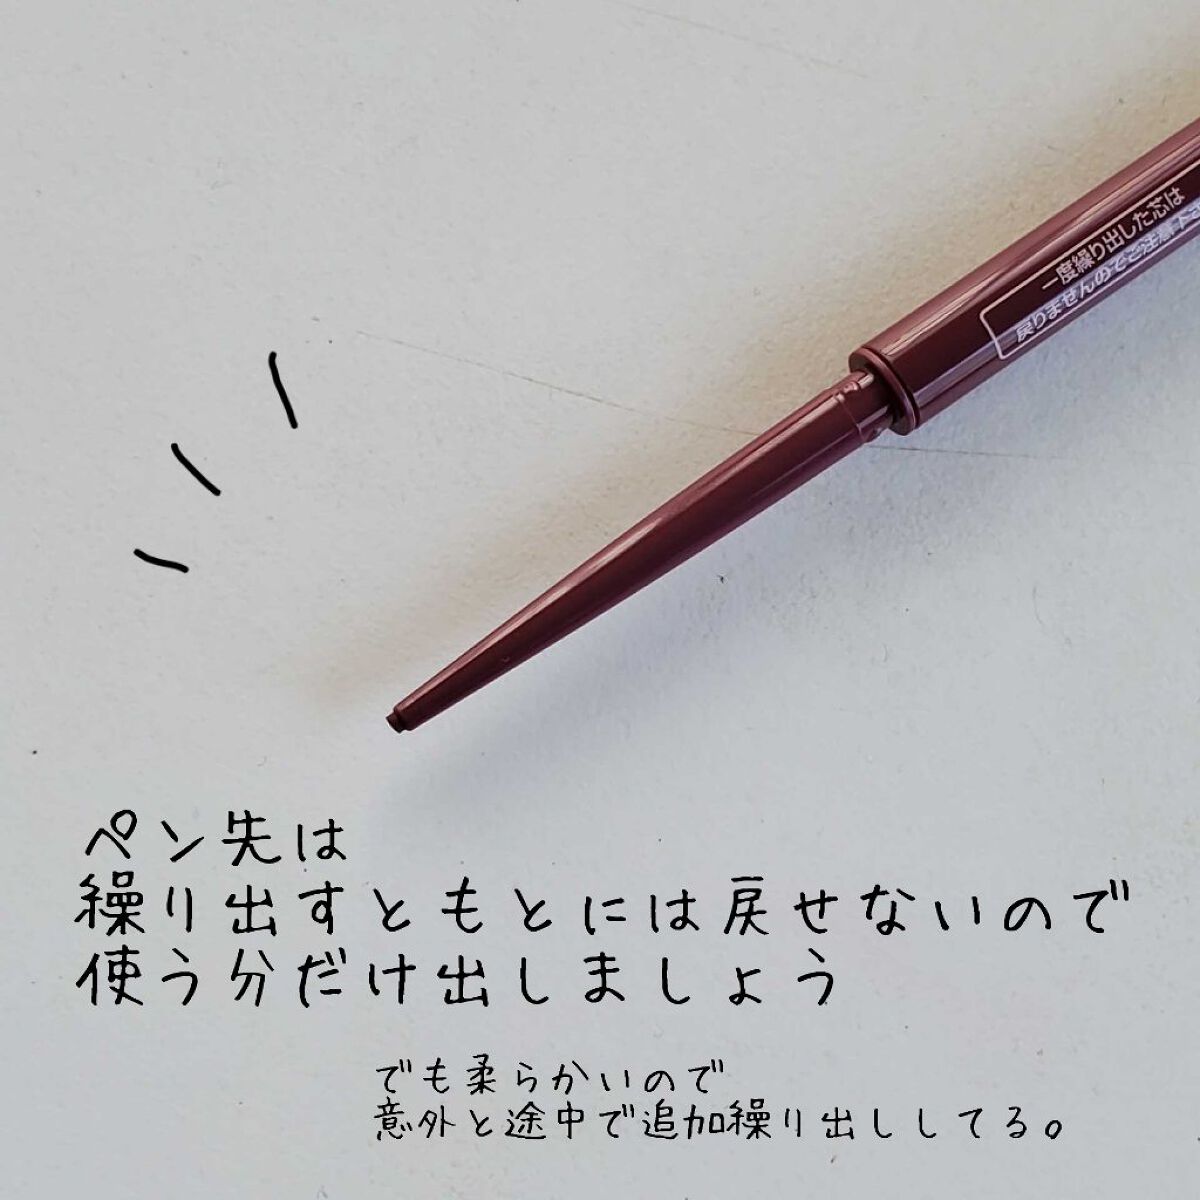 一度繰り出した芯は
戻りませんのでご注意下
ペン先は
繰り出すともとには戻せないので
使う分だけ出しましょう
でも柔らかいので
意外と途中で追加繰り出ししてる。